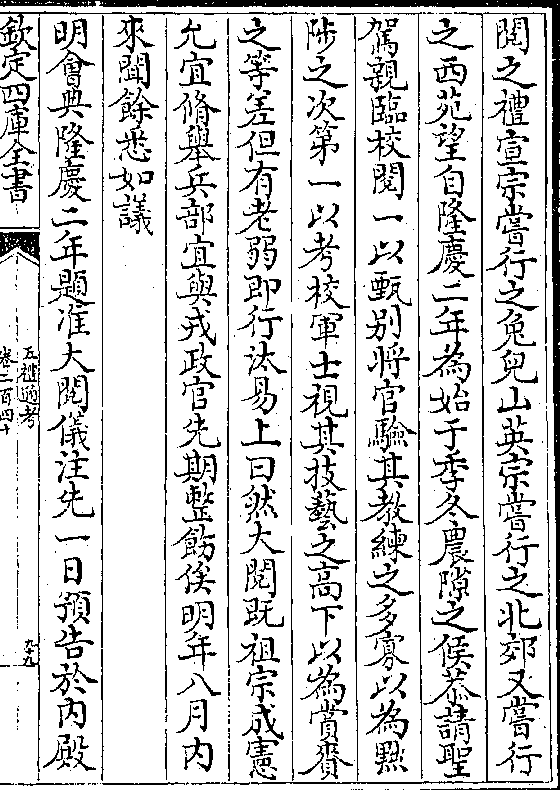 閱之禮宣宗嘗行之兔兒山英宗嘗行之北郊又嘗行
之西苑望自隆慶二年為始于季冬農隙之候恭請聖
駕親臨校閱一以甄別將官驗其教練之多寡以為黜
陟之次第一以考校軍士視其技藝之高下以為賞賚
之等差但有老弱即行汰易上曰然大閱既祖宗成憲
允宜脩舉兵部宜與戎政官先期整飭俟明年八月内
來聞餘悉如議
明會典隆慶二年題准大閱儀注先一日預告於内殿
欽定四庫全書
五禮通考
卷二百四十